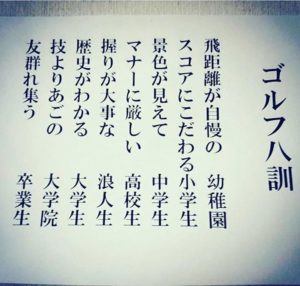 ゴルフ八訓
飛距離が自慢の 幼稚園
スコアにこだわる小学生
景色が見えて 中学生
マナーに厳しい 高校生
握りが大事な 浪人生
歴史がわかる 大学生
技よりあごの 大学院
友群れ集う 卒業生